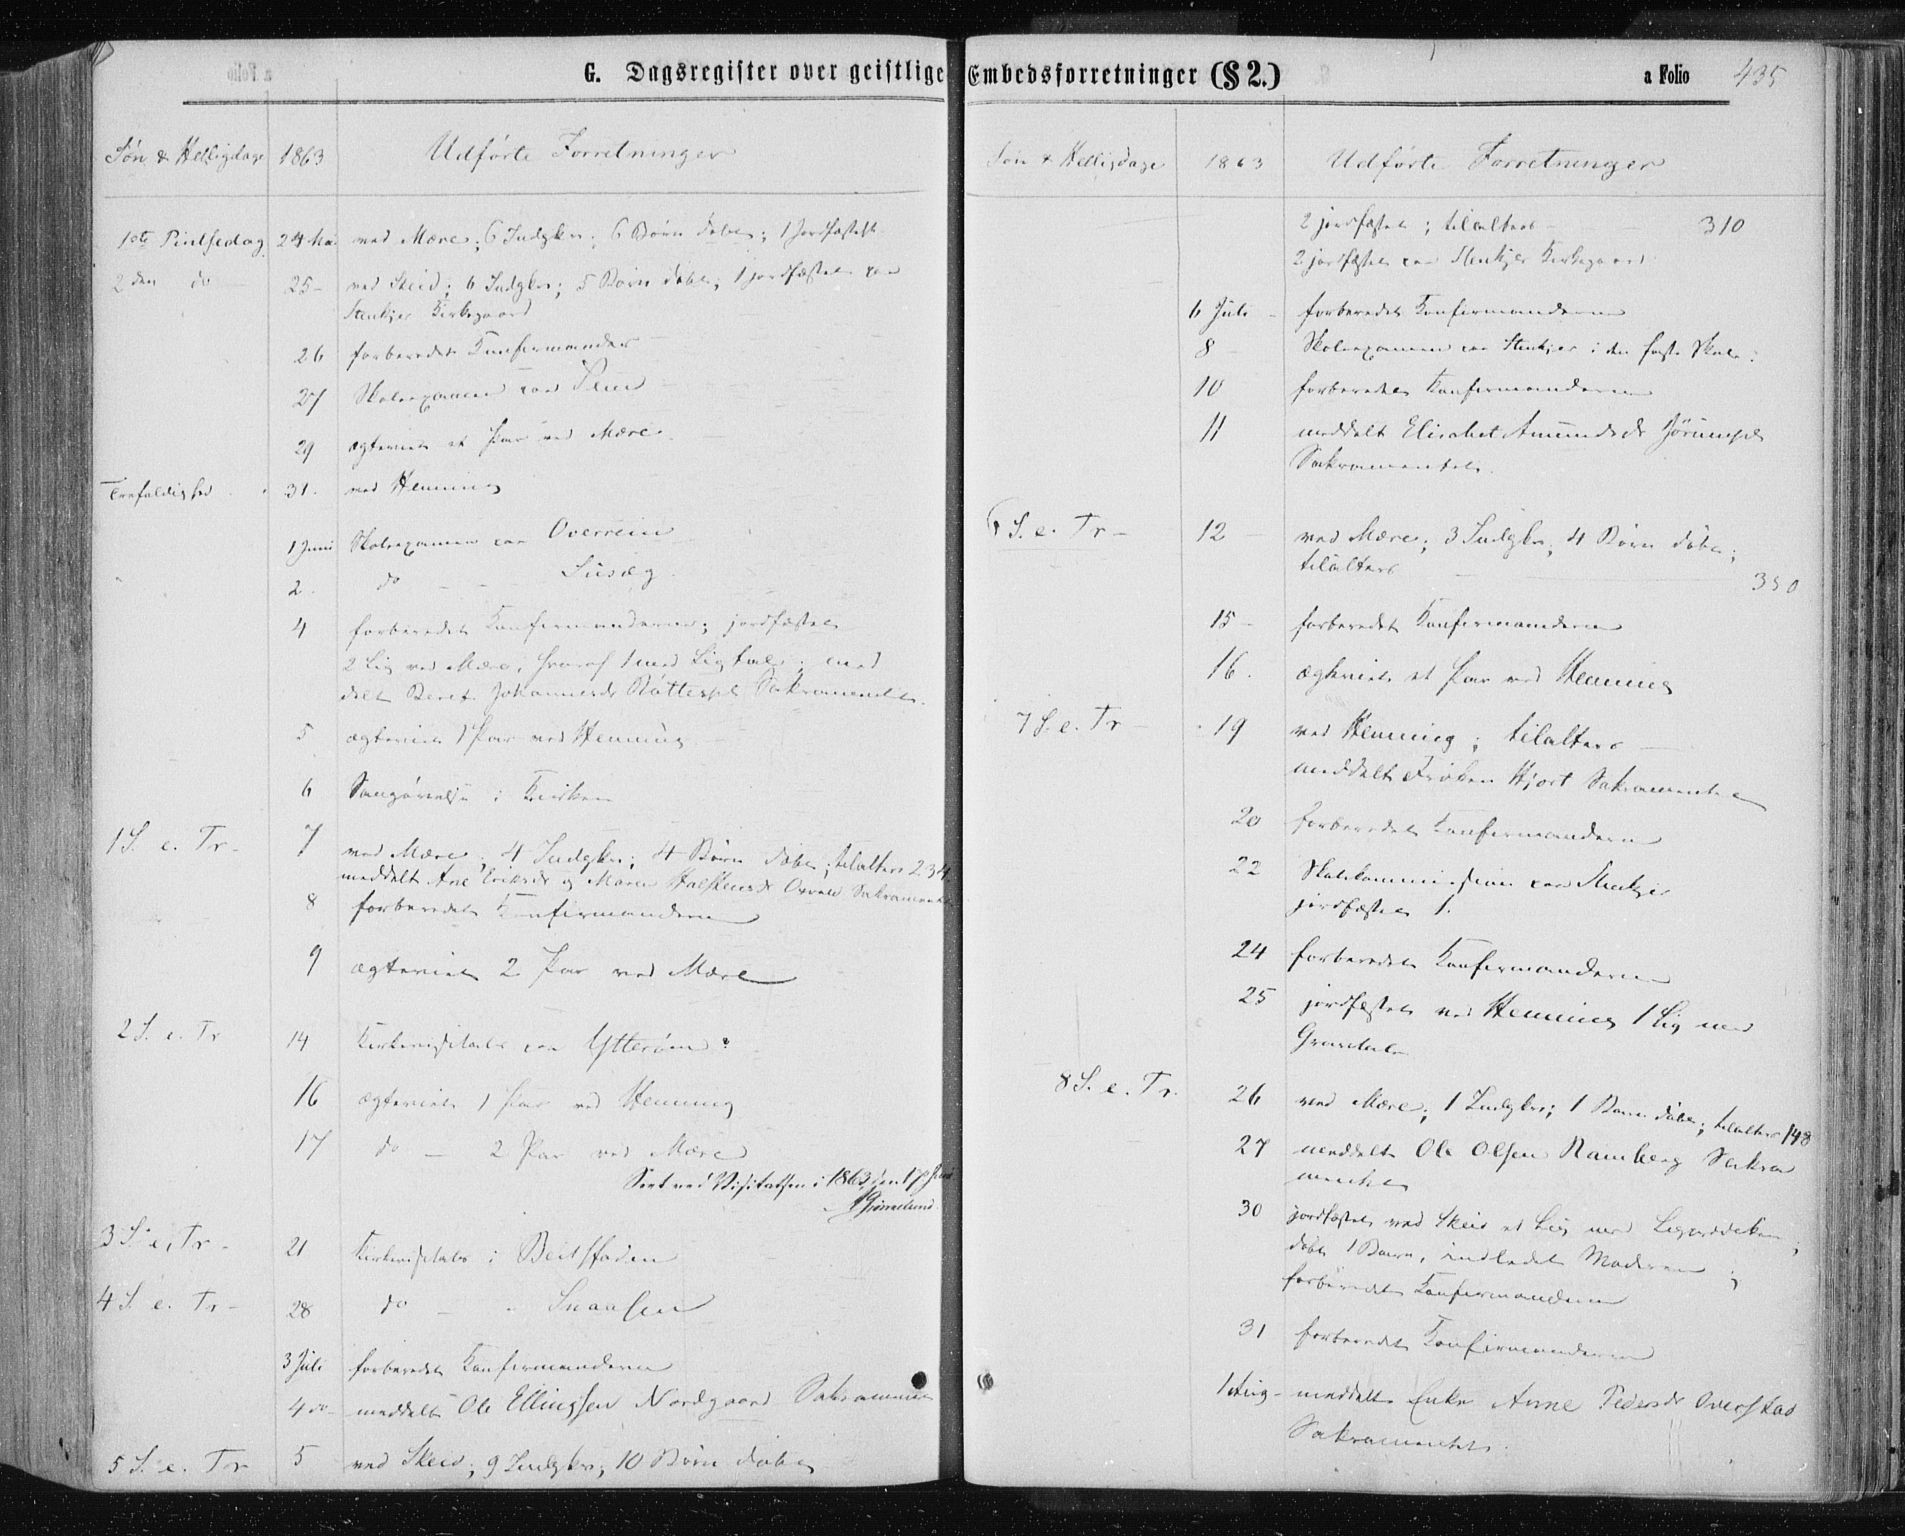 G. Dagsregister over geistlige Embedsforretninger (§ 2.)
a Folio 435
Søn & Helligdage 1863 Udførte Forretninger
1ste Pintsedag 24 Mai ved Mære; 6 Indgkr; 6 Børn døbte; 1 jordfæstet
2den do 25 - ved Skeid; 6 Indgkr; 5 Børn døbte; 1 jordfæstet paa
Stenkjer Kirkegaard
26 forberedet Konfirmander
27 Skoleexamen paa
29 ægteviet et Par ved Mære
Trefoldighed 31. ved Henning
1 Juni Skoleexamen paa Overrein
2. do - - Susæg
4 forberedet Konfirmanderne; jordfæstet
2 Lig ved Mære, hvoraf 1 med Ligtale; med
delt Beret Johannesdr Sakramentet.
5 ægteviet 1 Par ved Henning
6 Sangøvelse i Kirken
1 S. e. Tr - 7 ved Mære; 4 Indgkr; 4 Børn døbte; tilalters 234.
meddelt Ane Eriksdr og Maren Halstensdr Sakramentet
8 forberedet Konfirmanderne
9 ægteviet 2 Par ved Mære
2 S. e. Tr 14 Kirkevisitats paa Ytterøen
16 ægteviet 1 Par ved Henning
17 do - 2 Par ved Mære
Seet ved Visitatsen i 1863 den 17 Juni
3 S. e. Tr - 21 Kirkevisitats i Beitstaden
4 S. e. Tr - 28 do - - Snaasen
3 Juli forberedet Konfirmanderne
4 do - meddelt Ole Ellingsen Nordgaard Sakramentet
5 S. e. Tr 5 ved Skeid; 9 Indgkr; 10 Børn døbte
Søn & Helligdage 1863 Udførte Forretninger
2 jordfæstet; tilalters - 310
2 jordfæstet paa Stenkjer Kirkegaard
6 Juli - forberedet Konfirmanderne
8 - Skoleexamen paa Stenkjer i den faste Skole
10 forberedet Konfirmanderne
11 meddelt Elisabet Amundsdr
Sakramentet.
6 S. e. Tr - 12 - ved Mære; 3 Indgkr; 4 Børn døbte;
tilalters - 350
15 - forberedet Konfirmanderne
16. ægteviet et Par ved Henning
7 S. e. Tr - 19 ved Henning; tilalters -
meddelt Frøken Hjort Sakramentet
20 forberedet Konfirmanderne
22 Skolekommission paa Stenkjer
jordfæstet 1.
24 forberedet Konfirmanderne
25 jordfæstet ved Henning 1 Lig med
Gravtale
8 S. e. Tr. 26 ved Mære; 1 Indgkr; 1 Barn døbt; tilalters 148
27 meddelt Ole Olsen Ramberg Sakra
mentet
30 jordfæstet ved Skeid et Lig med
døbt 1 Barn, indledet Moderen;
forberedet Konfirmanderne
31 forberedet Konfirmanderne
1 Aug - meddelt Enke Anne Pedersdr Overstad
Sakramentet.